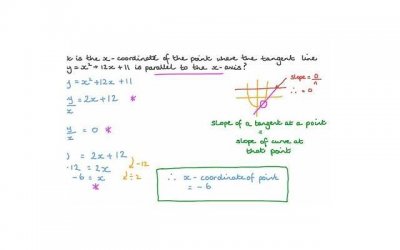 k is the x-coordinate of the point where the tangent line
y = x² + 12x + 11 is parallel to the x-axis?
y = x² + 12x + 11
y/x = 2x + 12 *
y/x = 0 *
) = 2x + 12
-12 = 2x
-12
-6 = x
÷2
*
slope = 0/n
∴ = 0
slope of a tangent at a point
=
slope of curve at
that point
∴ x-coordinate of point
= -6